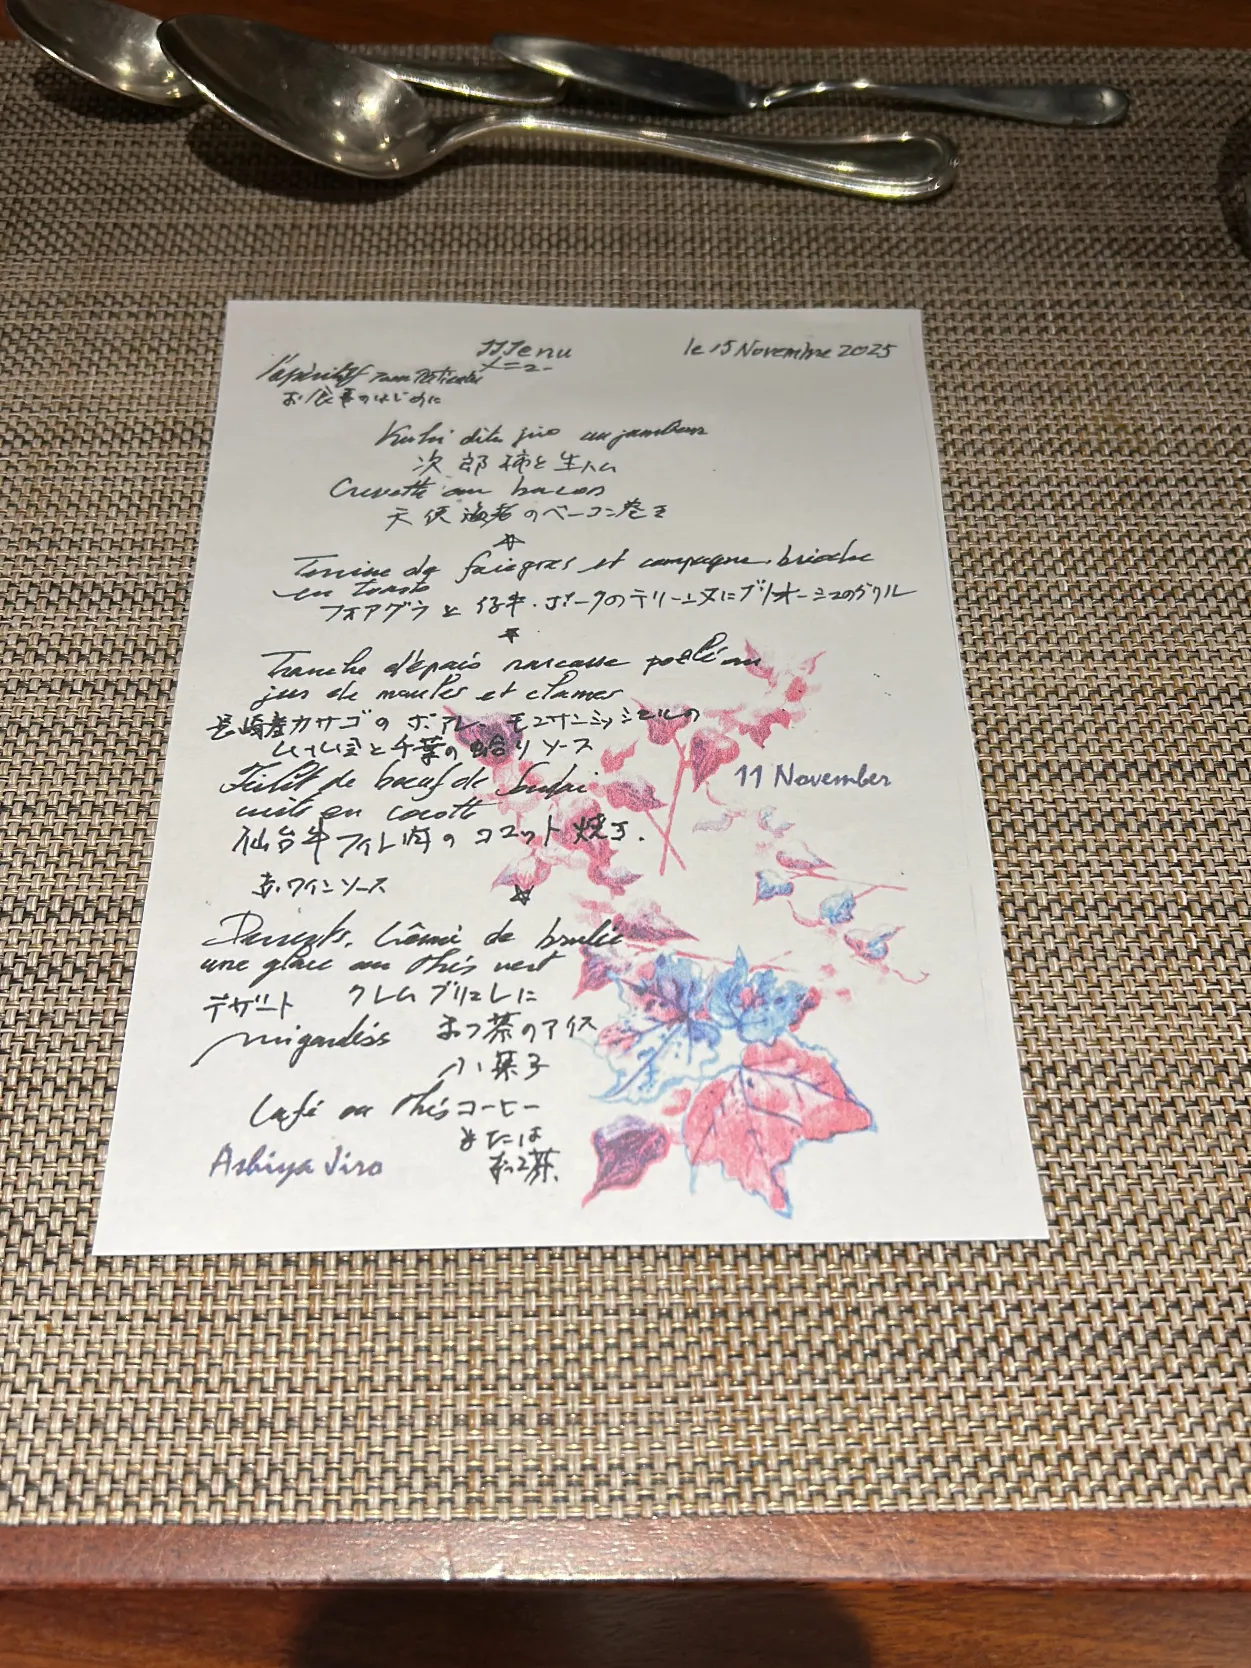 Menu
le 15 Novembre 2025
メニュー
l'apéritif
お食事のはじめに
Kaki dite jiro au jambon
次郎柿と生ハム
Crevette au bacon
天使海老のベーコン巻き
Terrine de foie gras et campagne. brioche
en toast
フォアグラと仔牛・ポークのテリーヌにブリオーシュのグリル
Tranche d'épais rascasse poêlé au
jus de moules et clames
長崎産カサゴのポアレ モンサンミッシェルの
ムール貝と千葉の蛤りソース
11 November
Filet de boeuf de Sendai
cuits en cocotte
仙台牛フィレ肉のココット焼き.
赤ワインソース
Desserts. Crème de brulée
une glace au thés vert
デザート クレムブリュレに
migardiss まっ茶のアイス
小菓子
Café ou thés コーヒー
または
Ashiya Jiro